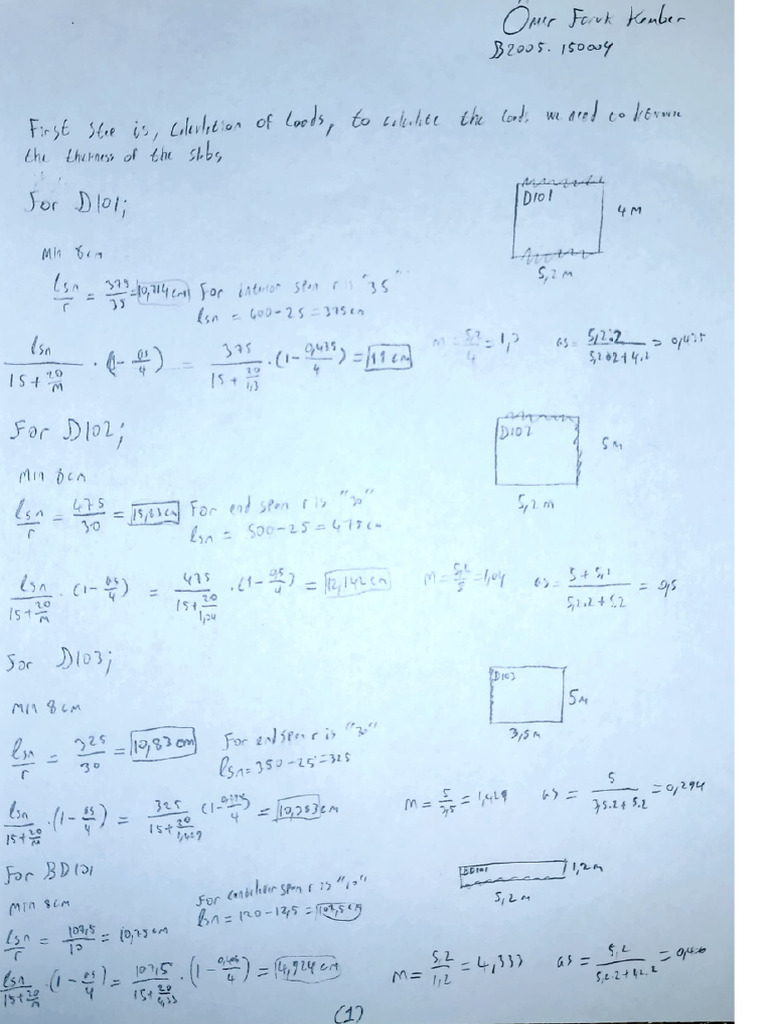 Ömer Faruk Kember
B2005.150004
First step is, calculation of loads, to calculate the loads we need to determine
the thickness of the slabs
For D101;
D101
4 M
5,2 M
Min 8 cm
lsn/r = 375/35 = 10,714 cm For interior span r is "35"
lsn = 400-25 = 375 cm
lsn/(15+20/m) . (1-αs/4) = 375/(15+20/1,3) . (1-0,435/4) = 11 cm
m = 5,2/4 = 1,3 αs = 5,2.2/(5,2.2+4.2) =
For D102;
D102
5 M
5,2 M
Min 8 cm
lsn/r = 475/30 = 15,83 cm For end span r is "30"
lsn = 500-25 = 475 cm
lsn/(15+20/m) . (1-αs/4) = 475/(15+20/1,04) . (1-0,5/4) = 12,142 cm
m = 5,2/5 = 1,04 αs = (5+5,2)/(5,2.2+5.2) = 0,5
For D103;
D103
5 M
3,5 M
Min 8 cm
lsn/r = 325/30 = 10,83 cm For end span r is "30"
lsn = 350-25 = 325
lsn/(15+20/m) . (1-αs/4) = 325/(15+20/1,429) (1-0,294/4) = 10,353 cm
m = 5/3,5 = 1,429 αs = 5/(3,5.2+5.2) = 0,294
For BD101
BD101
1,2 M
5,2 M
Min 8 cm
For cantilever span r is "10"
lsn = 120-12,5 = 107,5 cm
lsn/r = 107,5/10 = 10,75 cm
lsn/(15+20/m) . (1-αs/4) = 107,5/(15+20/4,33) . (1-0,406/4) = 4,924 cm
m = 5,2/1,2 = 4,333 αs = 5,2/(5,2.2+1,2.2) = 0,406
(1)